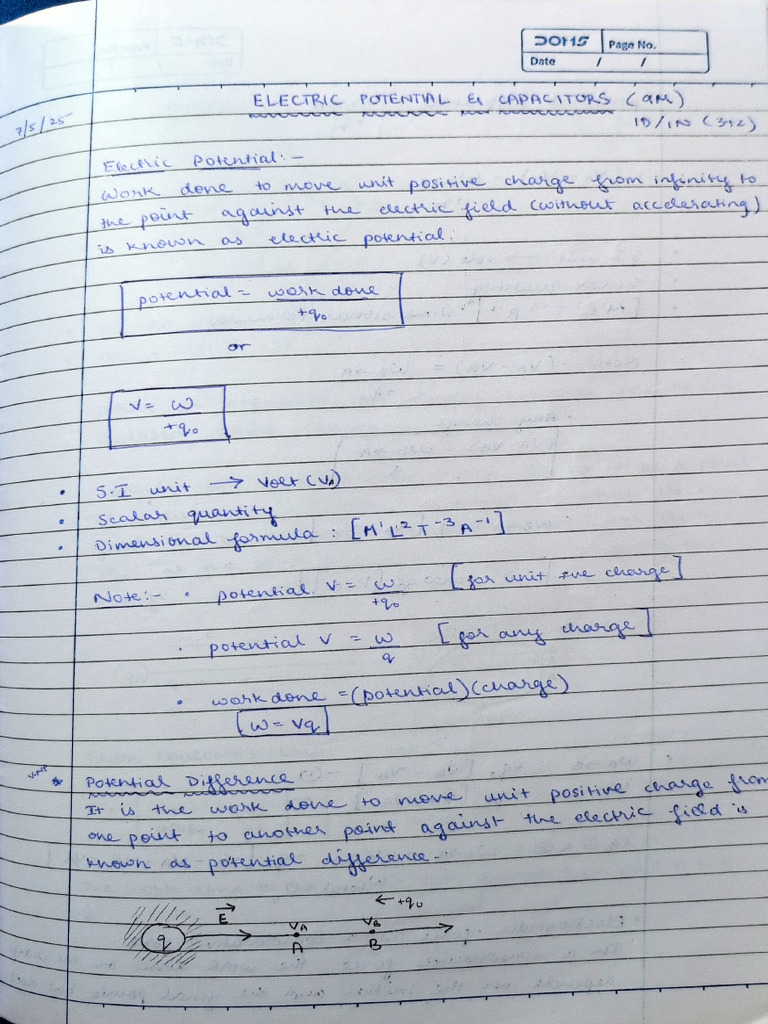 DOMS Page No.
Date / /
ELECTRIC POTENTIAL & CAPACITORS (9M)
7/5/25
1D/1N (3+2)
Electric Potential:-
Work done to move unit positive charge from infinity to
the point against the electric field (without accelerating)
is known as electric potential.
potential = work done
+q₀
or
V = W
+q₀
• S.I unit → Volt (V)
• Scalar quantity
• Dimensional formula : [M¹L²T⁻³A⁻¹]
Note:- • potential V = W/+q₀ [for unit +ve charge]
• potential V = W/q [for any charge]
• work done = (potential)(charge)
[W = Vq]
* Potential Difference
It is the work done to move unit positive charge from
one point to another point against the electric field is
known as potential difference.
← +q₀
E V_A V_B
q A B